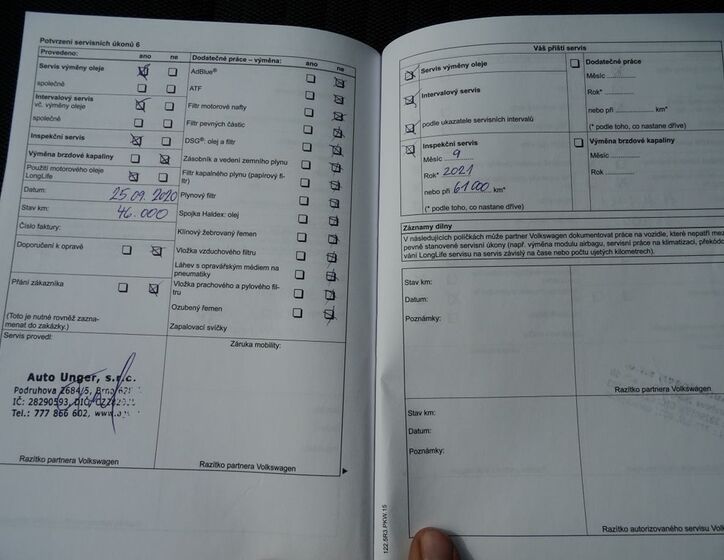 Potvrzení servisních úkonů 6
Provedeno: ano ne
Servis výměny oleje
společně
Intervalový servis
vč. výměny oleje
společně
Inspekční servis
Výměna brzdové kapaliny
Použití motorového oleje
LongLife
Datum: 25.09.2020
Stav km: 46.000
Číslo faktury:
Doporučení k opravě
Přání zákazníka
(Toto je nutné rovněž zazna-
menat do zakázky.)
Servis provedl:
Auto Unger, s.r.o.
Podruhova 2684/5, Brno
IČ: 28290593, DIČ:
Tel.: 777 866 602, www.
Razítko partnera Volkswagen
Dodatečné práce – výměna: ano ne
AdBlue®
ATF
Filtr motorové nafty
Filtr pevných částic
DSG®: olej a filtr
Zásobník a vedení zemního plynu
Filtr kapalného plynu (papírový fi-
ltr)
Plynový filtr
Spojka Haldex: olej
Klínový žebrovaný řemen
Vložka vzduchového filtru
Láhev s opravářským médiem na
pneumatiky
Vložka prachového a pylového fil-
tru
Ozubený řemen
Zapalovací svíčky
Záruka mobility:
Razítko partnera Volkswagen
Váš příští servis
Servis výměny oleje
Intervalový servis
podle ukazatele servisních intervalů
Inspekční servis
Měsíc 9
Rok* 2021
nebo při 61000 km*
(* podle toho, co nastane dříve)
Dodatečné práce
Měsíc
Rok*
nebo při km*
(* podle toho, co nastane dříve)
Výměna brzdové kapaliny
Měsíc
Rok
Záznamy dílny
V následujících políčkách může partner Volkswagen dokumentovat práce na vozidle, které nepatří mezi
pevně stanovené servisní úkony (např. výměna modulu airbagu, servisní práce na klimatizaci, překódo-
vání LongLife servisu na servis závislý na čase nebo počtu ujetých kilometrů).
Stav km:
Datum:
Poznámky:
Razítko partnera Volkswagen
Stav km:
Datum:
Poznámky:
Razítko autorizovaného servisu
122.5R3.PKW.15